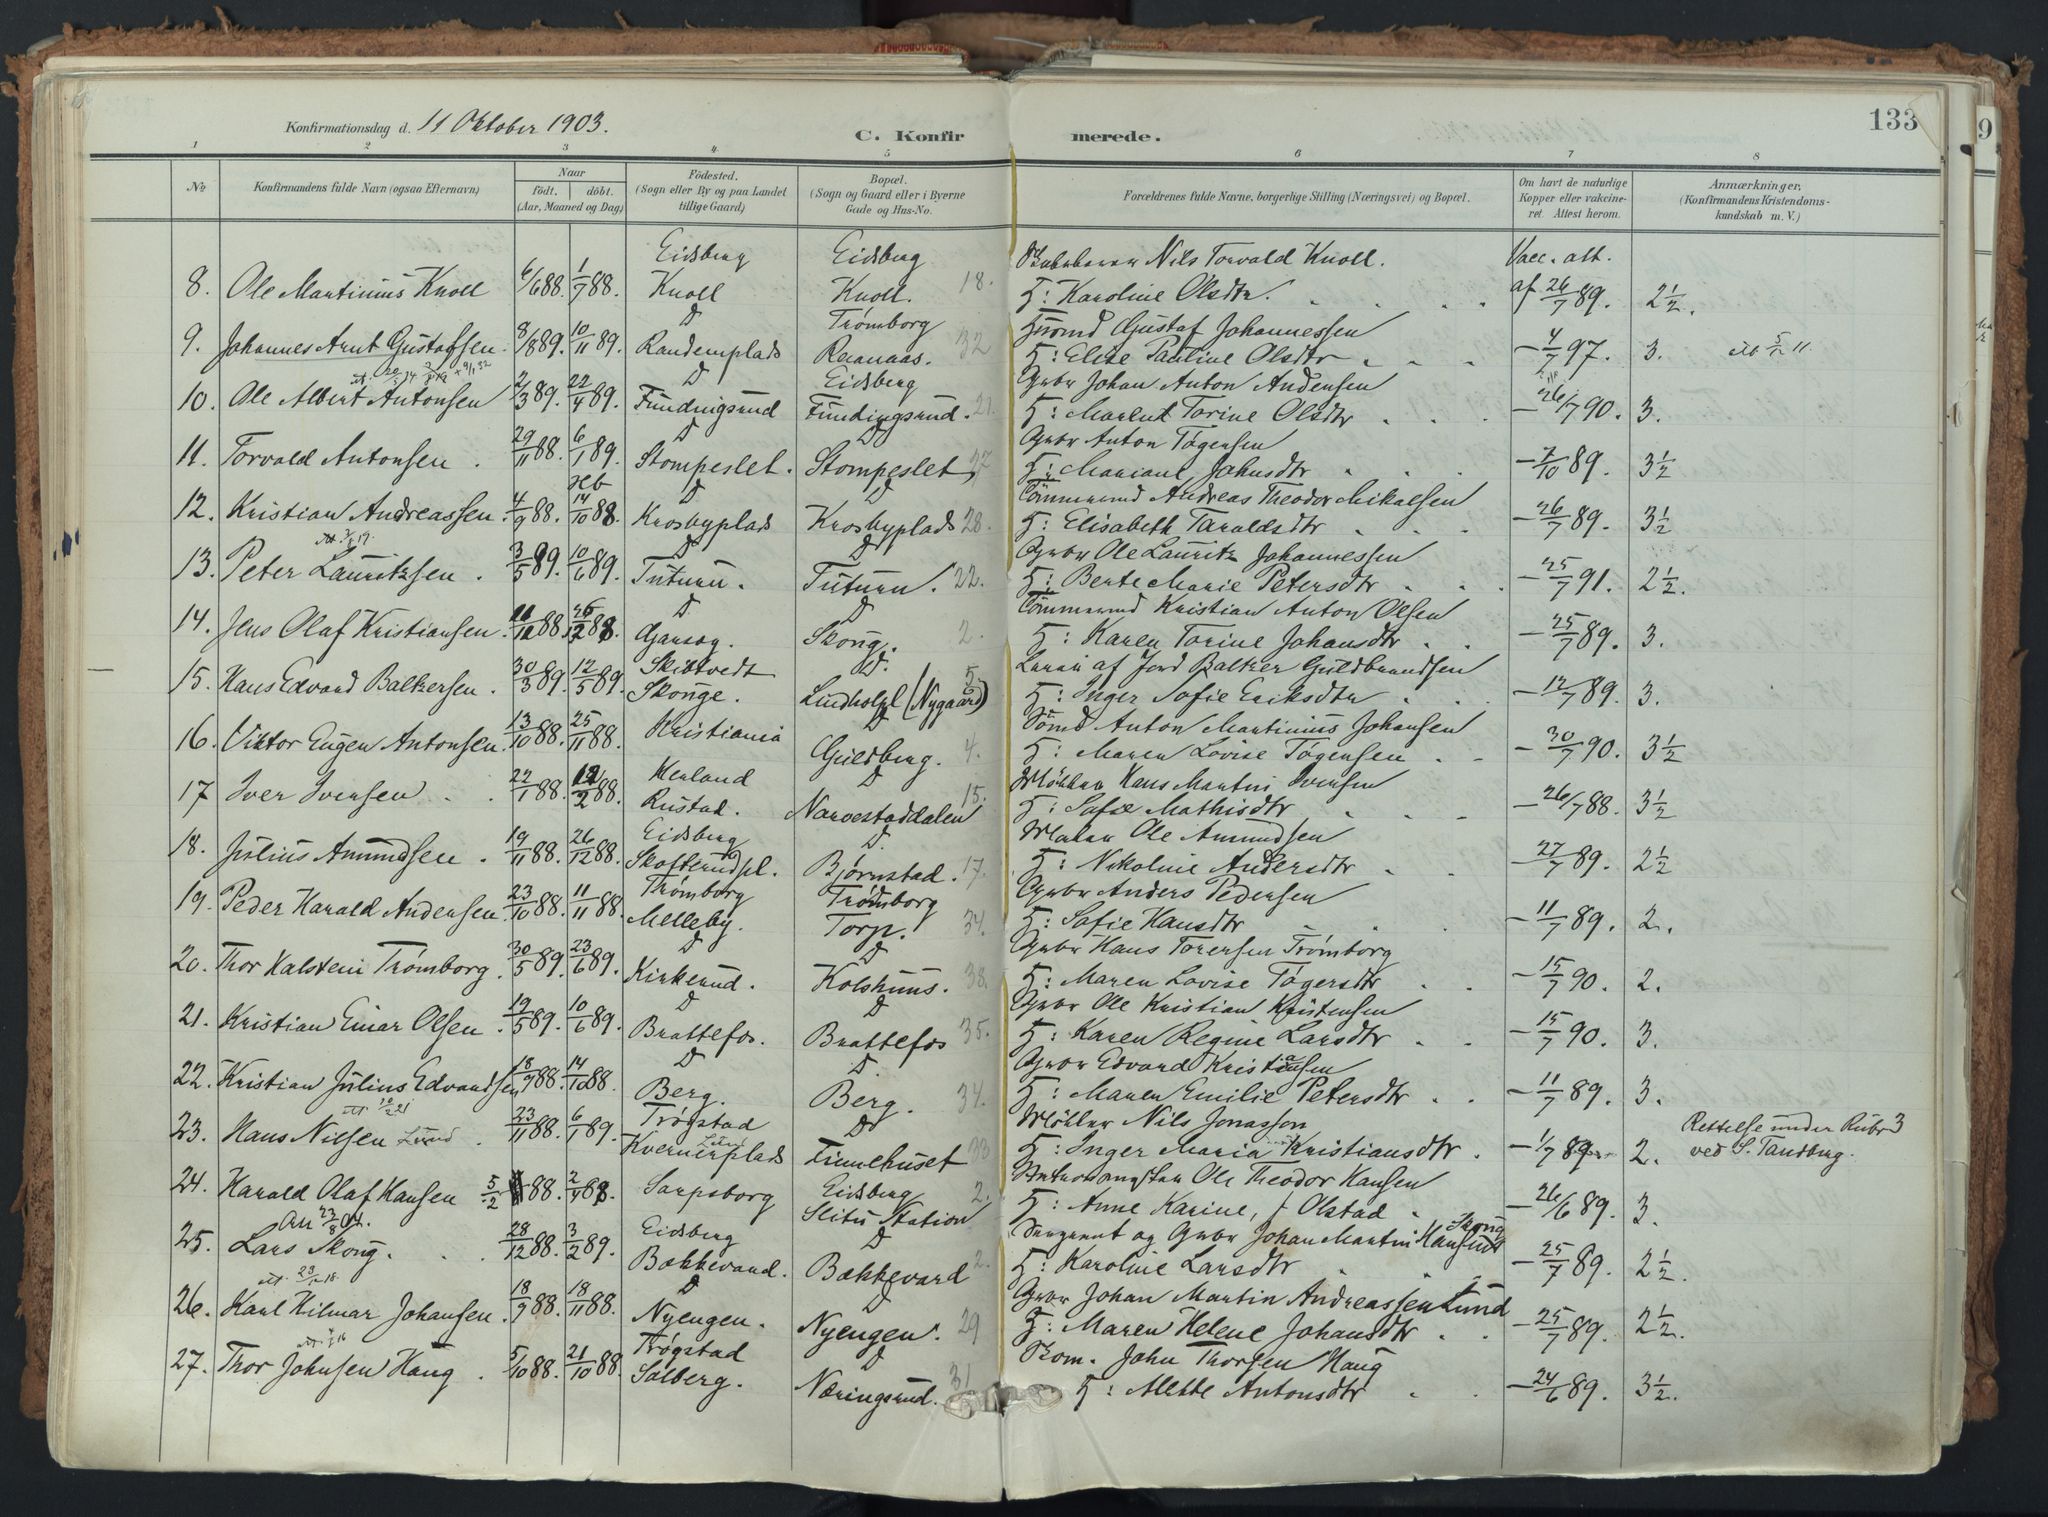 133
Konfirmationsdag d. 11 Oktober 1903.
C. Konfirmerede.
1 2 3 4 5 6 7 8
No
Konfirmandens fulde Navn (ogsaa Efternavn)
Naar
født. døbt.
(Aar, Maaned og Dag)
Födested.
(Sogn eller By og paa Landet
tillige Gaard)
Bopæl.
(Sogn og Gaard eller i Byerne
Gade og Hus-No.
Forældrenes fulde Navne, borgerlige Stilling (Næringsvei) og Bopæl.
Om havt de naturlige
Kopper eller vakcine-
ret. Attest herom.
Anmærkninger,
(Konfirmandens Kristendoms-
kundskab m. V.)
Eidsberg Eidsberg Nils Torvald Knoll. Vacc. att.
8. Ole Martinius Knoll 6/6 88. 1/7 88. Knoll Knoll. 18. H: Karoline Olsdtr. af 26/7 89. 2½.
D Trømborg Husmd Gustaf Johannessen
9. Johannes Arnt Gustafsen 8/8 89. 10/11 89. Randemplads 32 H: Elise Pauline Olsdtr – 4/7 97. 3. att 5/12 11.
D Eidsberg Gbr Johan Anton Andersen
10. Ole Albert Antonsen 2/3 89. 22/4 89. Fundingsrud Fundingsrud. 21. H: Maren Torine Olsdtr – 26/7 90. 3.
D D Gbr Anton Tøgersen
11. Torvald Antonsen. 29/11 88. 6/1 89. Stompeslet. Stompeslet 27 H: Mariane Johnsdtr – 7/10 89. 3½
Hb D D Tömmermd Andreas Theodor Mikalsen
12. Kristian Andreassen. 4/9 88. 14/10 88 Krosbyplads Krosbyplads 28. H: Elisabeth Taraldsdtr – 26/7 89. 3½
D D Gbr Ole Lauritz Johannessen
13. Peter Lauritzsen. 3/5 89. 10/6 89. Tuturu. Tuturu. 22. H: Berte Marie Petersdtr – 25/7 91. 2½.
D D Tömmermd Kristian Anton Olsen
14. Jens Olaf Kristiansen. 88. 26/12 88. Skoug. 2. H: Karen Torine Johansdtr – 25/7 89. 3.
Skiptvedt D. af Jord Baltzer Guldbrandsen
15. Hans Edvard Baltzersen. 30/3 89. 12/5 89. Skouge. Lindholpl (Nygaard) 5. H: Inger Sofie Eriksdtr – 12/7 89. 3.
D Anton Martinius Johansen
16. Viktor Eugen Antonsen. 13/10 88. 25/11 88. Kristiania Guldberg. 4. H: Maren Lovise Tøgersen – 30/7 90. 3½
Henland D Møller Hans Martin Iversen
17 Iver Iversen 22/1 88. 12/2 88. Rustad. Narvestaddalen 15. H: Sofie Mathisdtr – 26/7 88. 3½
Eidsberg D. Maler Ole Amundsen
18. Julius Amundsen. 19/11 88. 26/12 88. Skofterudpl. Bjørnstad. 17. H: Nikoline Andersdtr – 27/7 89. 2½
Trömborg Trømborg Gbr Anders Pedersen
19. Peder Harald Andersen. 23/10 88. 11/11 88. Melleby. Torp. 34. H: Sofie Hansdtr – 11/7 89. 2.
D D Gbr Hans Torersen Trømborg
20. Thor Halstein Trömborg. 30/5 89. 23/6 89. Kirkerud. Kolshuus. 38. H: Maren Lovise Tøgersdtr – 15/7 90. 2.
D D Gbr Ole Kristian Kristensen
21. Kristian Einar Olsen. 19/5 89. 10/6 89. Brattefos. Brattefos 35. H: Karen Regine Larsdtr – 15/7 90. 3.
D D. Gbr Edvard Kristiansen
22. Kristian Julius Edvardsen 18/9 88. 14/10 88. Berg. Berg. 34. H: Maren Emilie Petersdtr – 11/7 89. 3.
Trøgstad D Møller Nils Jonasson Rettelse under Rubr 3
23. Hans Nilsen Lund. 23/11 88. 6/1 89. Kvernerplads Finnehuset 33 H: Inger Maria Kristiansdtr. – 1/7 89. 2. ved S. Tandberg.
24. Harald Olaf Hansen 5/2 88. 2/4 88. Sarpsborg Eidsberg 2. Ole Theodor Hansen
Slitu Station H: Anne Karine, f Olstad – 26/6 89. 3.
Eidsberg D Sergeant og Gbr Johan Martin Hansen Skoug
25. Lars Skoug. 28/12 88. 3/2 89. Bakkevard. Bakkevard 2. H: Karoline Larsdtr – 25/7 89. 2½.
D D Gbr Johan Martin Andreassen Lund
26. Karl Hilmar Johansen. 18/9 88. 18/11 88. Nyengen. Nyengen. 29 H: Maren Helene Johansdtr – 25/7 89. 2½.
Trøgstad D John Thorsen Haug
27. Thor Johnsen Haug. 5/10 88. 21/10 88. Solberg. Næringsrud. 31 H: Mette Antonsdtr – 24/6 89. 3½.